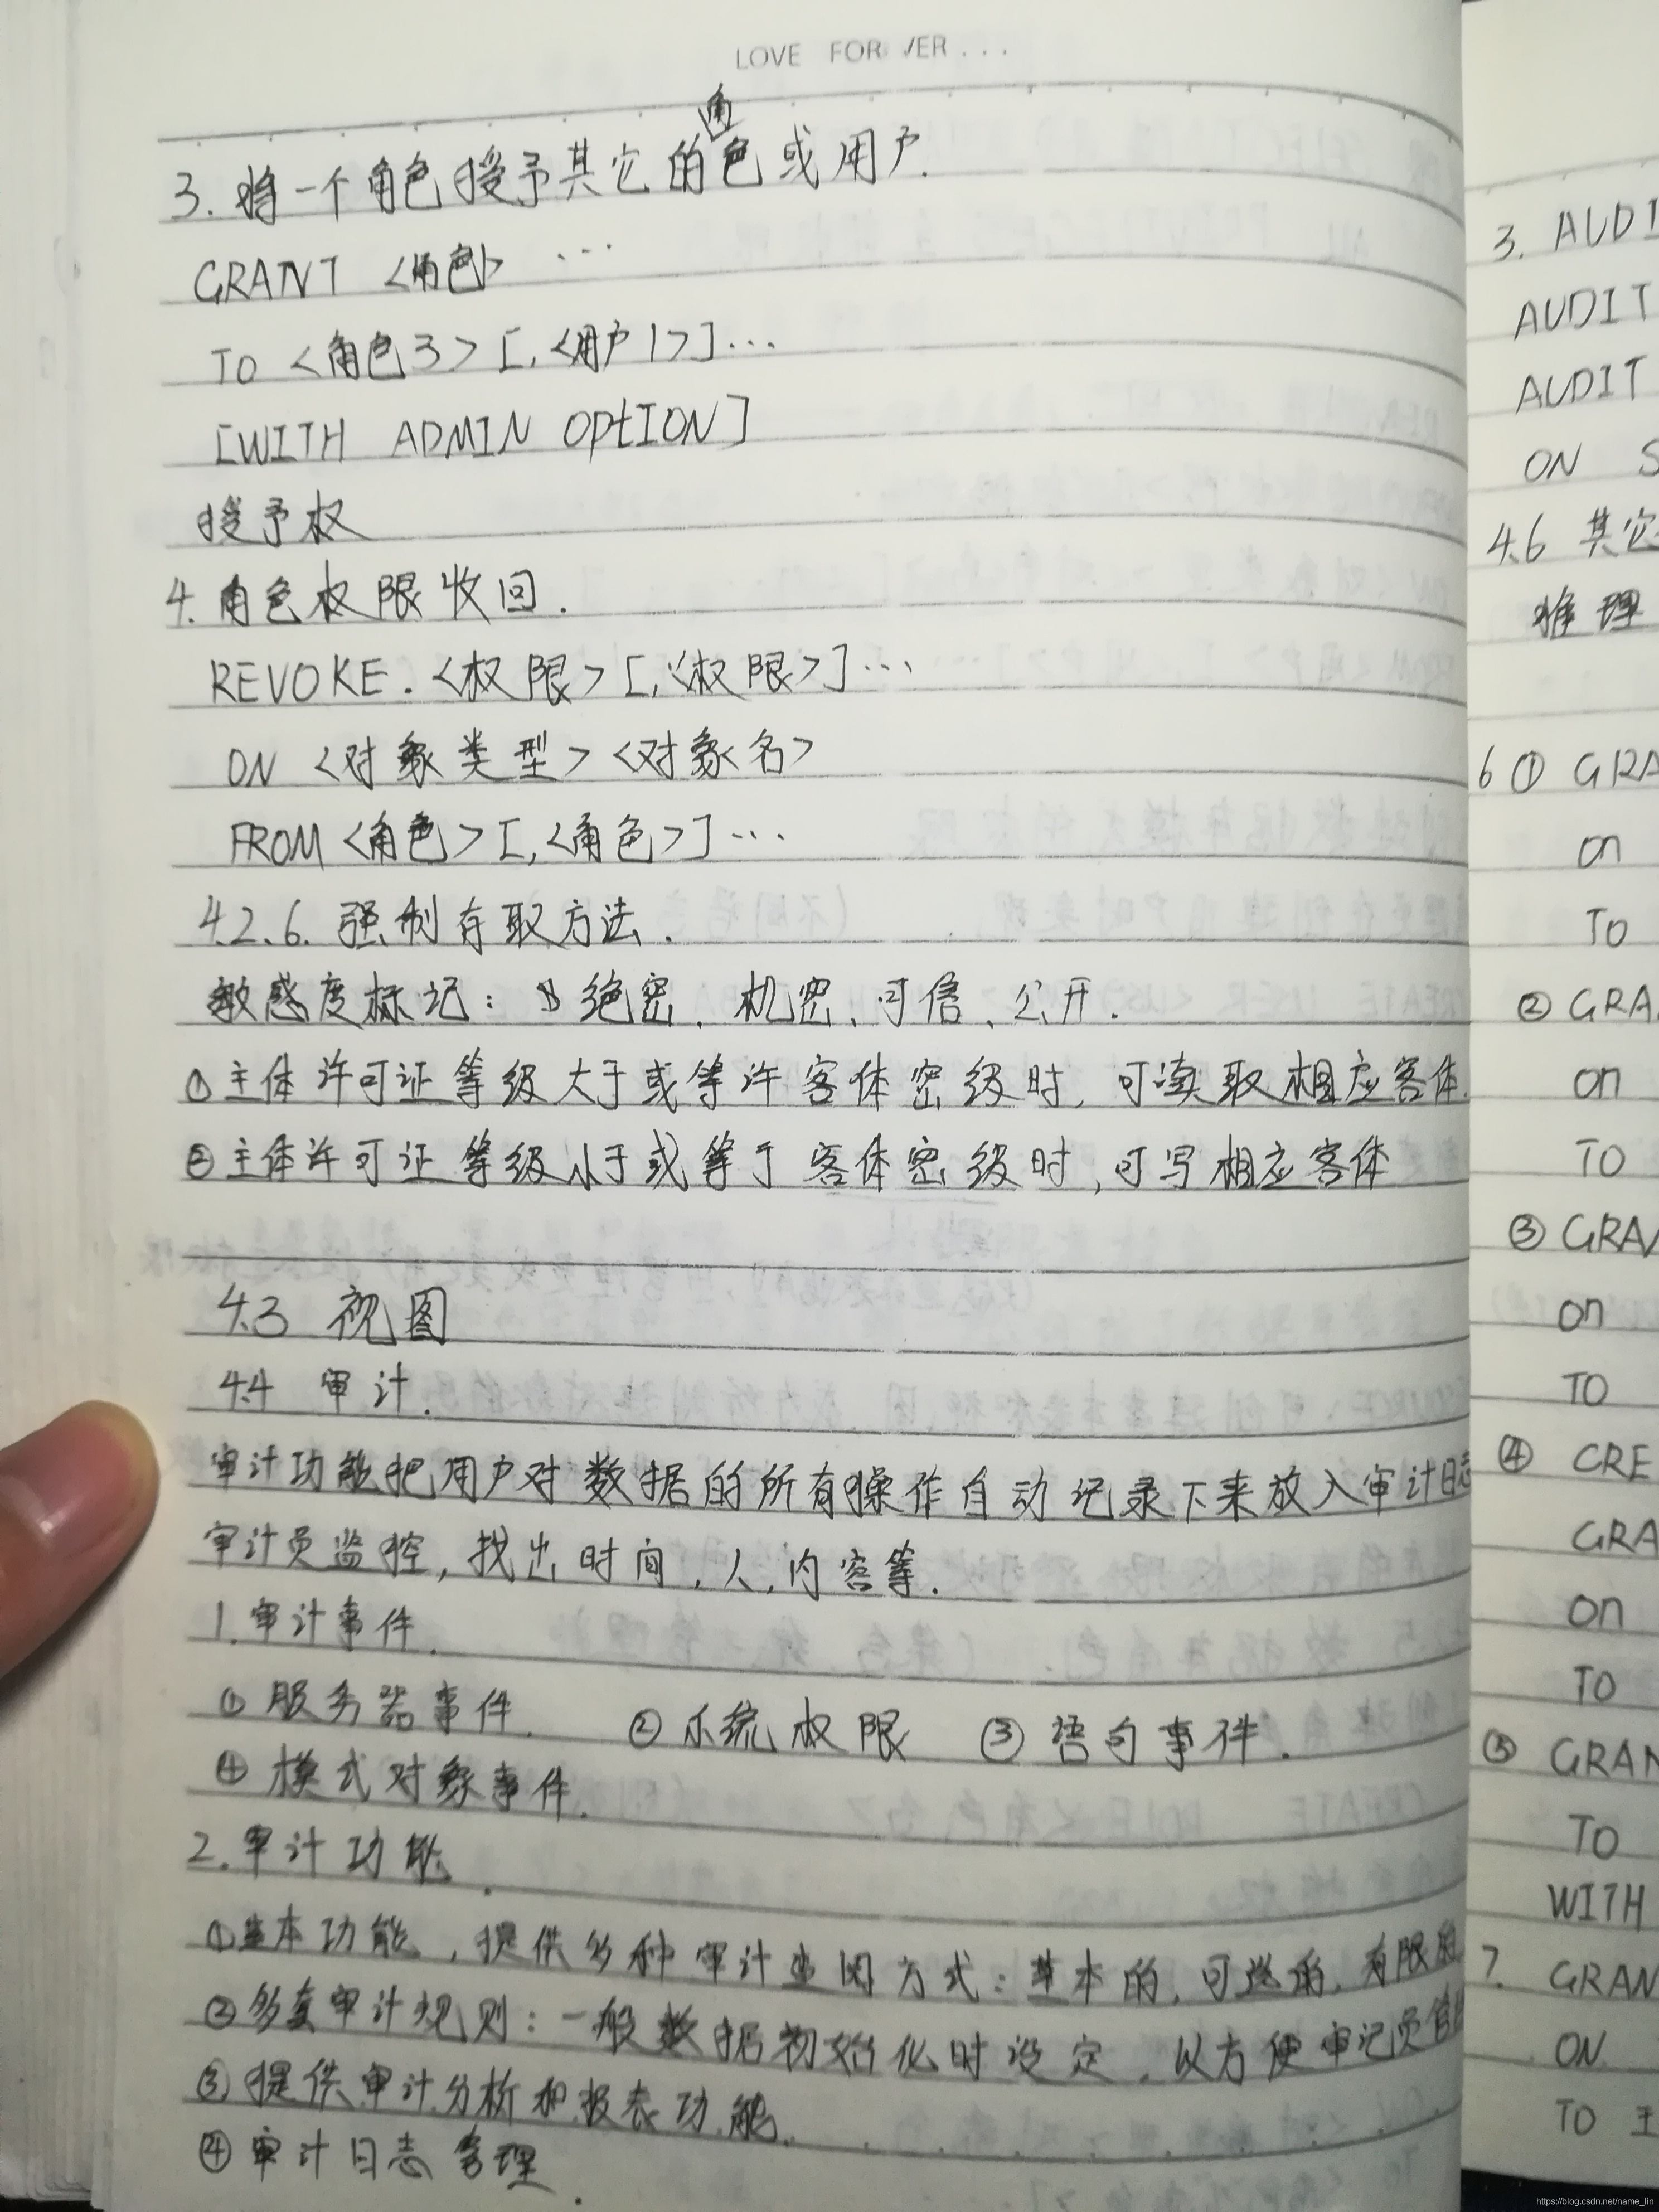 LOVE FOR VER...
角
3. 将一个角色授予其它的色或用户.
GRANT <角色> ...
TO <角色3> [,<用户1>]...
[WITH ADMIN OPtION]
授予权
4. 角色权限收回.
REVOKE. <权限> [,<权限>]...
ON <对象类型> <对象名>
FROM <角色> [,<角色>]...
4.2.6. 强制存取方法.
敏感度标记: 绝密、机密、可信、公开.
①主体许可证等级大于或等许客体密级时, 可读取相应客体.
②主体许可证等级小于或等于客体密级时, 可写相应客体
4.3 视图
4.4 审计.
审计功能把用户对数据的所有操作自动记录下来放入审计日志
审计员监控, 找出时间, 人, 内容等.
1.审计事件.
①服务器事件. ②系统权限 ③语句事件.
④模式对象事件.
2.审计功能.
①基本功能, 提供多种审计查阅方式: 基本的, 可选的, 有限的
②多套审计规则: 一般数据初始化时设定, 以方便审记员管
③提供审计分析和报表功能.
④审计日志管理.
3. AUDI
AUDIT
AUDIT
ON S
4.6 其它
推理
6 ① GRA
on
TO
② GRA
on
TO
③ GRA
on
TO
④ CRE
GRA
on
TO
⑤ GRAN
TO
WITH
7. GRAN
ON
TO 王
https://blog.csdn.net/name_lin